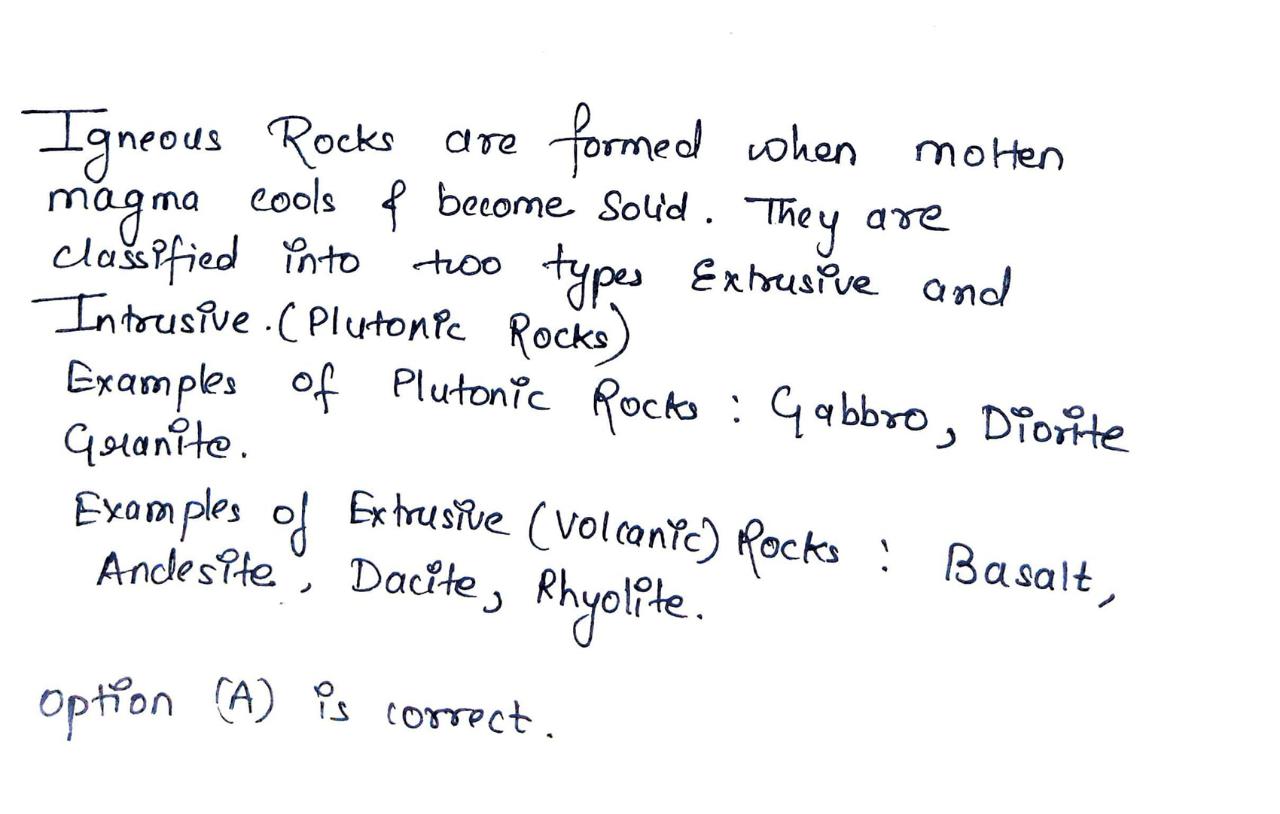 Igneous Rocks are formed when molten
magma cools & become Solid. They are
classified into two types Extrusive and
Intrusive. (Plutonic Rocks)
Examples of Plutonic Rocks : Gabbro, Diorite
Granite.
Examples of Extrusive (Volcanic) Rocks : Basalt,
Andesite, Dacite, Rhyolite.
option (A) is correct.